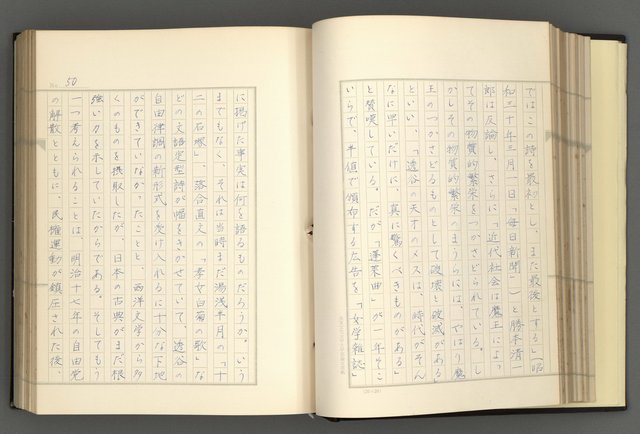 ではこの詩を最初とし、また最後とする」(昭
和三十年三月一日「毎日新聞」)と勝本清一
郎は反論し、さらに「近代社会は魔王によっ
てその物質的繁栄をつかさどられている。し
かしその物質的繁栄のまうらには、やはり魔
王のつかさどるものとして破壊と破滅がある」
といい、「透谷の天才のメスは、時代がそん
なに早いだけに、真に驚くべきものがある」
と賛嘆している。だが「蓬萊曲」が一年そこ
いらで、半値で頒布する広告を「女学雑誌」
No. 50
に掲げた事実は何を語るものだろうか。いう
までもなく、それは当時まだ湯浅半月の「十
二の石塚」、落合直文の「孝女白菊の歌」な
どの文語定型詩が幅をきかせていて、透谷の
自由律調の新形式を受け入れるに十分な下地
ができていなかったことと、西洋文学から多
くのものを摂取したが、日本の古典がまだ根
強い力を示していたからである。そしてもう
一つ考えられることは、明治十七年の自由党
の解散とともに、民権運動が鎮圧された後、
(20×20)